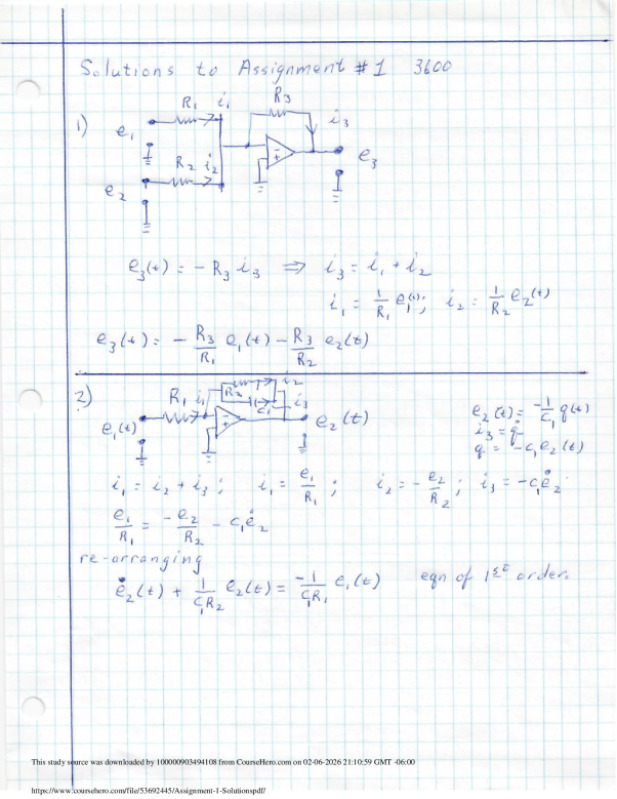 Solutions to Assignment #1 3600
R₃
R₁ i₁
i₃
1)
e₁
e₃
R₂ i₂
e₂
e₃(t) = - R₃ i₃ ⇒ i₃ = i₁ + i₂
i₁ = 1/R₁ e₁(t); i₂ = 1/R₂ e₂(t)
e₃(t) = - R₃/R₁ e₁(t) - R₃/R₂ e₂(t)
2)
i₂
R₂
R₁ i₁
C₁ i₃
e₁(t)
e₂(t)
e₂(t) = -1/C₁ q(t)
i₃ = q̇
q = -C₁ e₂(t)
i₁ = i₂ + i₃; i₁ = e₁/R₁; i₂ = - e₂/R₂; i₃ = -C₁ė₂
e₁/R₁ = -e₂/R₂ - C₁ė₂
re-arranging
ė₂(t) + 1/C₁R₂ e₂(t) = -1/C₁R₁ e₁(t) eqn of 1st order.
This study source was downloaded by 100000903494108 from CourseHero.com on 02-06-2026 21:10:59 GMT -06:00
https://www.coursehero.com/file/53692445/Assignment-1-Solutionspdf/